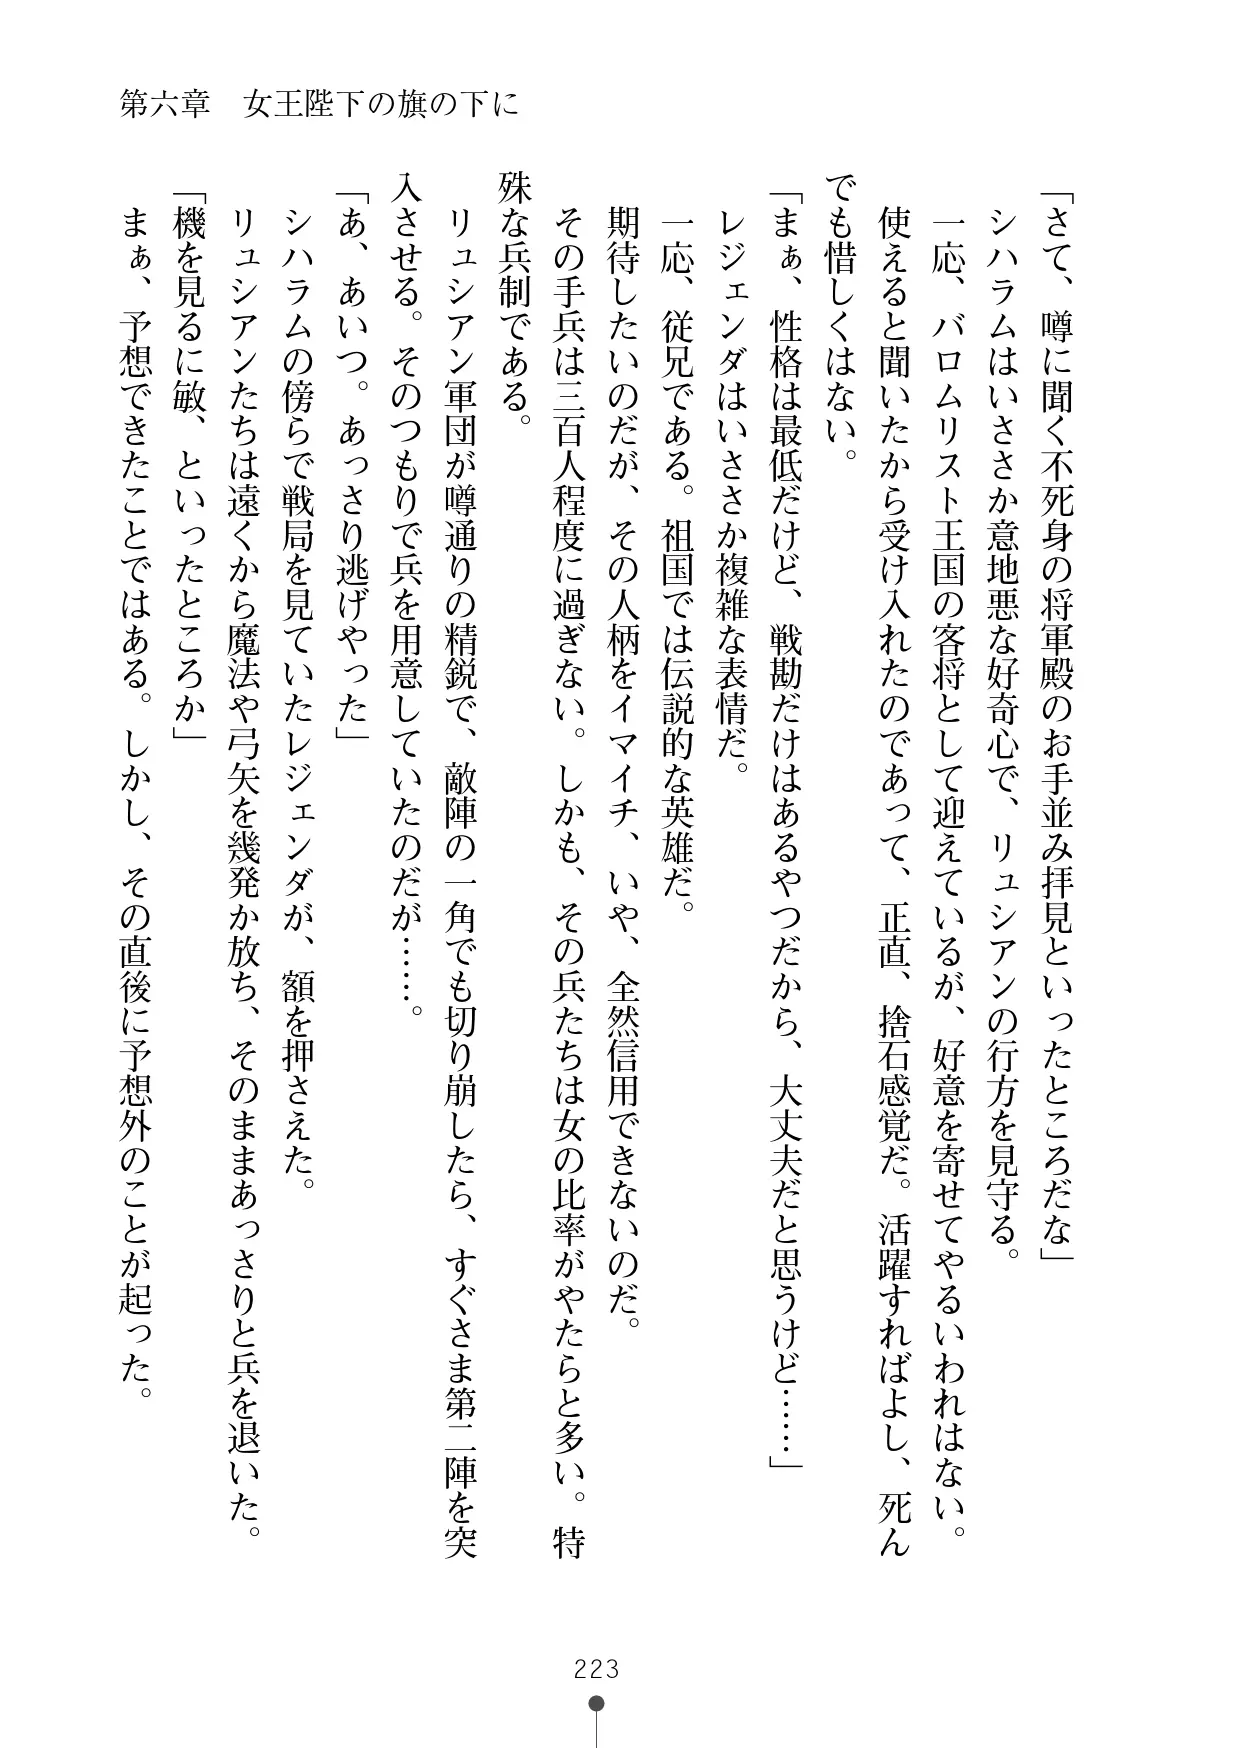 第六章　女王陛下の旗の下に
「さて、噂に聞く不死身の将軍殿のお手並み拝見といったところだな」
シハラムはいささか意地悪な好奇心で、リュシアンの行方を見守る。
一応、バロムリスト王国の客将として迎えているが、好意を寄せてやるいわれはない。
使えると聞いたから受け入れたのであって、正直、捨石感覚だ。活躍すればよし、死ん
でも惜しくはない。
「まぁ、性格は最低だけど、戦勘だけはあるやつだから、大丈夫だと思うけど……」
レジェンダはいささか複雑な表情だ。
一応、従兄である。祖国では伝説的な英雄だ。
期待したいのだが、その人柄をイマイチ、いや、全然信用できないのだ。
その手兵は三百人程度に過ぎない。しかも、その兵たちは女の比率がやたらと多い。特
殊な兵制である。
リュシアン軍団が噂通りの精鋭で、敵陣の一角でも切り崩したら、すぐさま第二陣を突
入させる。そのつもりで兵を用意していたのだが……。
「あ、あいつ。あっさり逃げやった」
シハラムの傍らで戦局を見ていたレジェンダが、額を押さえた。
リュシアンたちは遠くから魔法や弓矢を幾発か放ち、そのままあっさりと兵を退いた。
「機を見るに敏、といったところか」
まぁ、予想できたことではある。しかし、その直後に予想外のことが起った。
223